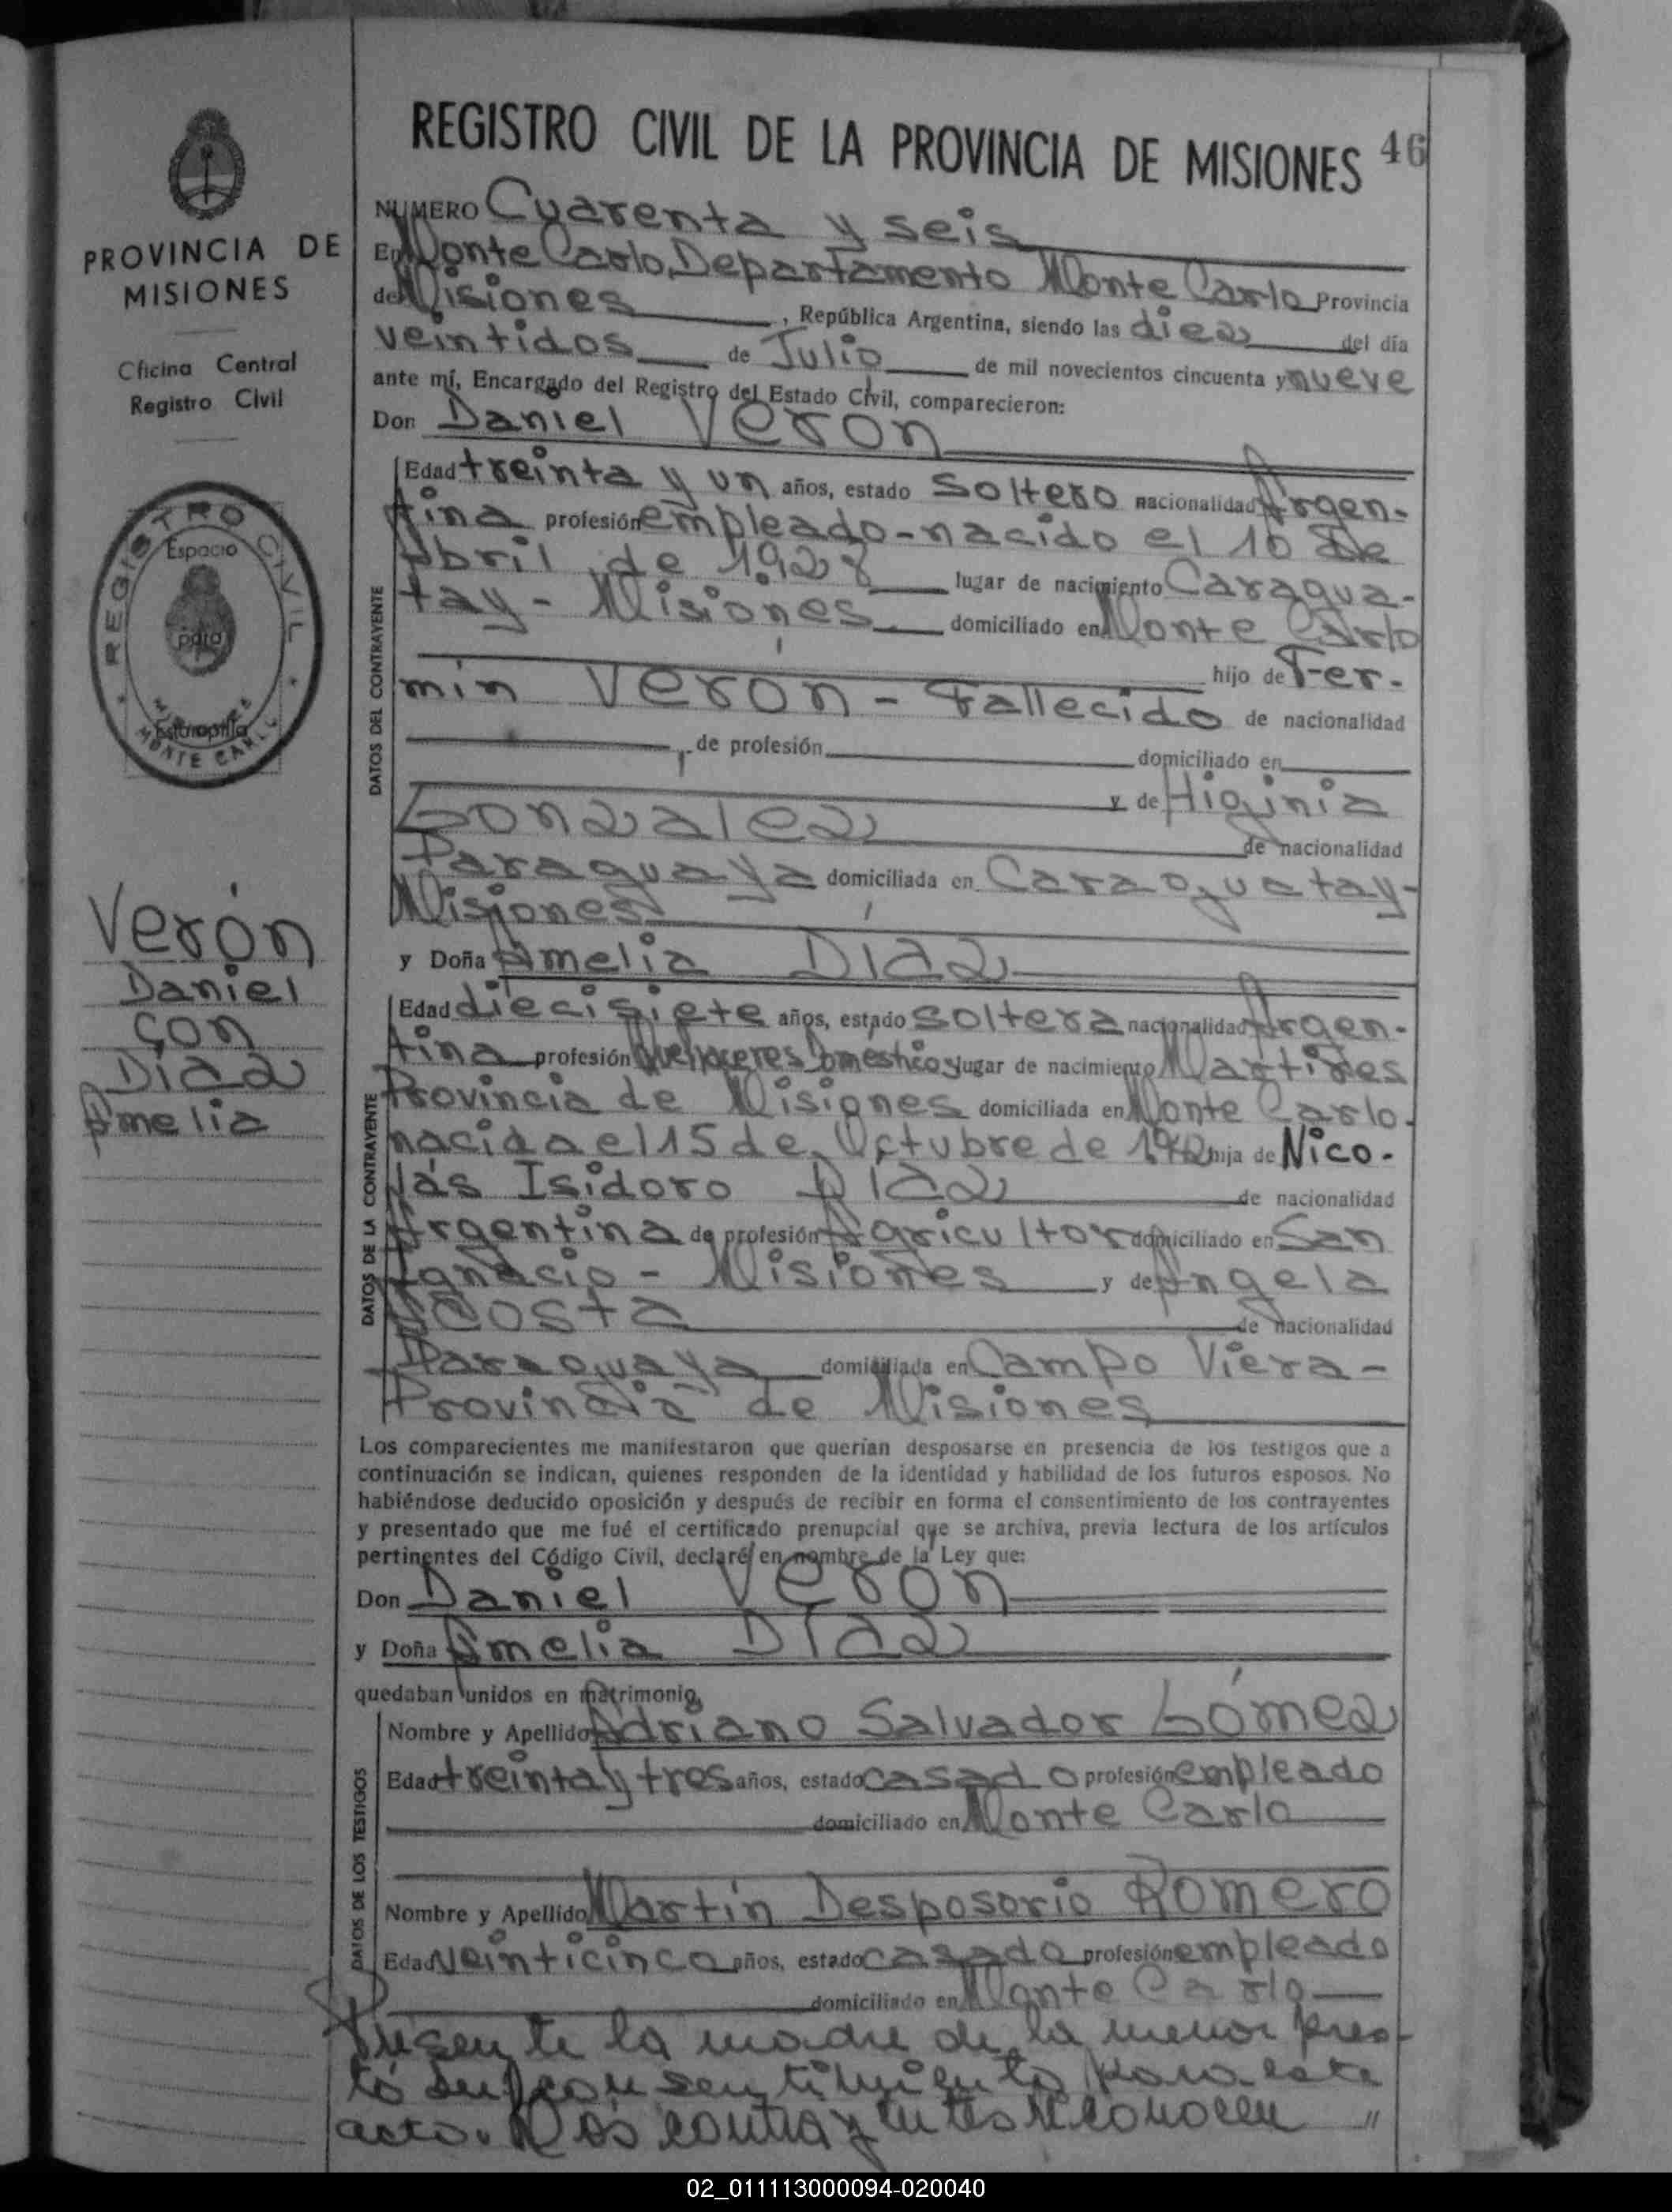 REGISTRO CIVIL DE LA PROVINCIA DE MISIONES 46
PROVINCIA DE
MISIONES
Oficina Central
Registro Civil
REGISTRO CIVIL
Espacio
para
Estampilla
MISIONES
MONTE CARLO
Verón
Daniel
con
Díaz
Amelia
NUMERO Cuarenta y seis
En Monte Carlo, Departamento Monte Carlo Provincia
de Misiones, República Argentina, siendo las diez del día
veintidos de Julio de mil novecientos cincuenta y nueve
ante mí, Encargado del Registro del Estado Civil, comparecieron:
Don Daniel Verón
DATOS DEL CONTRAYENTE
Edad treinta y un años, estado soltero nacionalidad Argen-
tina profesión empleado-nacido el 10 de
Abril de 1.928 lugar de nacimiento Caragua-
tay - Misiones domiciliado en Monte Carlo
hijo de Fer-
mín Verón - Fallecido de nacionalidad
, de profesión domiciliado en
y de Higinia
González de nacionalidad
Paraguaya domiciliada en Caraguatay-
Misiones
y Doña Amelia Díaz
DATOS DE LA CONTRAYENTE
Edad diecisiete años, estado soltera nacionalidad Argen-
tina profesión Quehaceres Domésticos lugar de nacimiento Martires
Provincia de Misiones domiciliada en Monte Carlo.
nacida el 15 de Octubre de 1.942 hija de Nico-
lás Isidoro Díaz de nacionalidad
Argentina de profesión Agricultor domiciliado en San
Ignacio - Misiones y de Angela
Acosta de nacionalidad
Paraguaya domiciliada en Campo Viera -
Provincia de Misiones
Los comparecientes me manifestaron que querían desposarse en presencia de los testigos que a
continuación se indican, quienes responden de la identidad y habilidad de los futuros esposos. No
habiéndose deducido oposición y después de recibir en forma el consentimiento de los contrayentes
y presentado que me fué el certificado prenupcial que se archiva, previa lectura de los artículos
pertinentes del Código Civil, declaré en nombre de la Ley que:
Don Daniel Verón
y Doña Amelia Díaz
quedaban unidos en matrimonio,
DATOS DE LOS TESTIGOS
Nombre y Apellido Adriano Salvador Gómez
Edad treinta y tres años, estado casado profesión empleado
domiciliado en Monte Carlo
Nombre y Apellido Martín Desposorio Romero
Edad veinticinco años, estado casado profesión empleado
domiciliado en Monte Carlo
Presente la madre de la menor pres-
tó su consentimiento para este
acto. Los contrayentes reconocen "
02_011113000094-020040